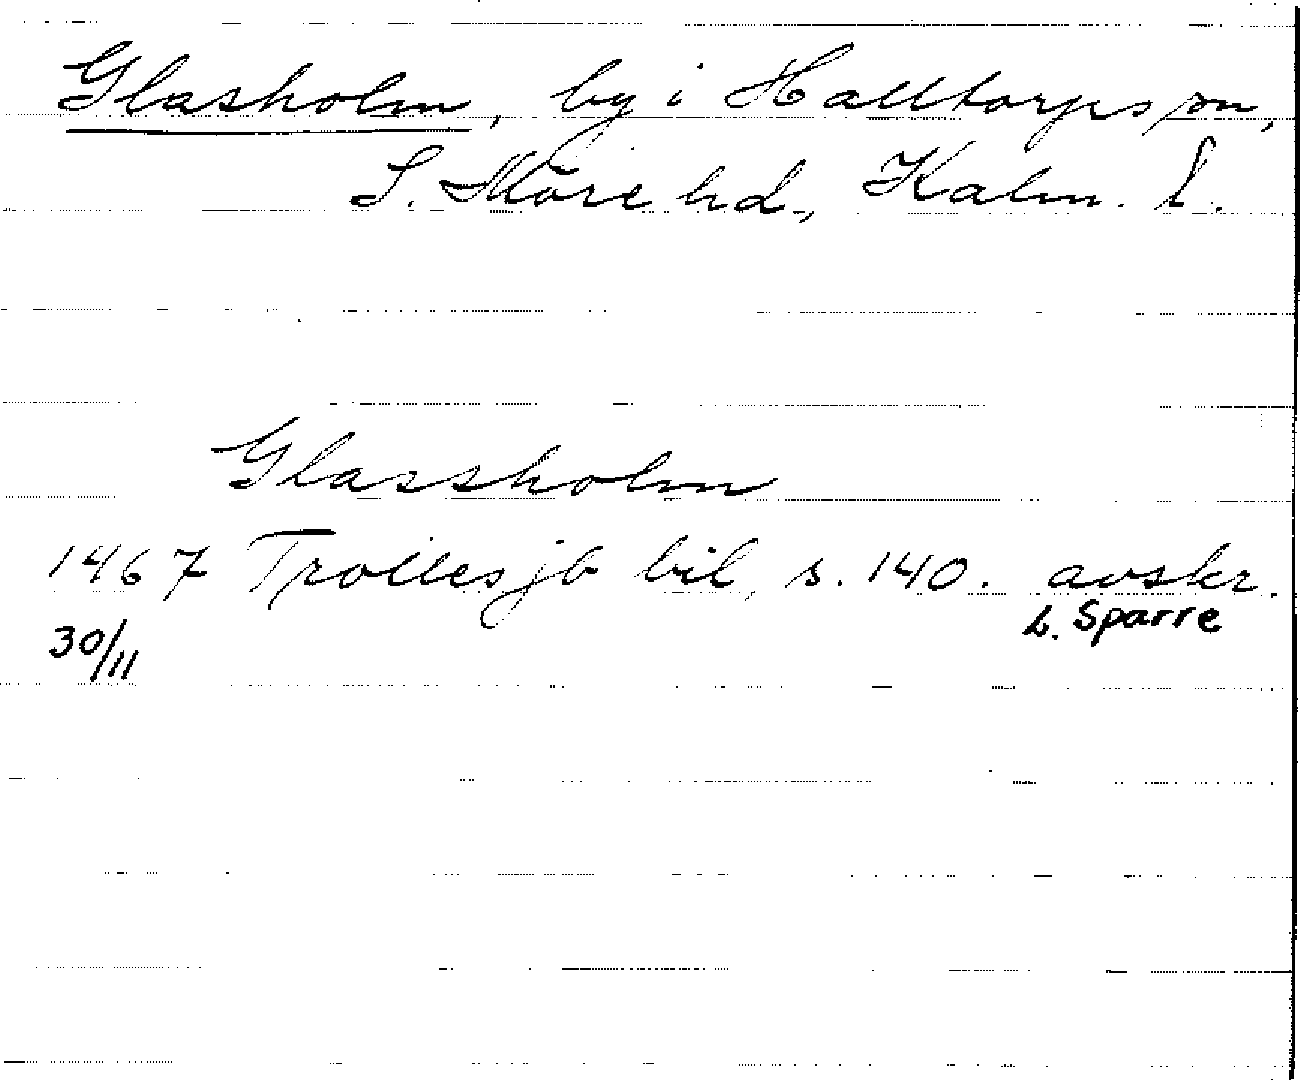 Glasholm, by i Halltorps sn,
S. Möre hd., Kalm. l.
Glassholm
1467 Trolles jb bil. s. 140. avskr.
30/11 L. Sparre